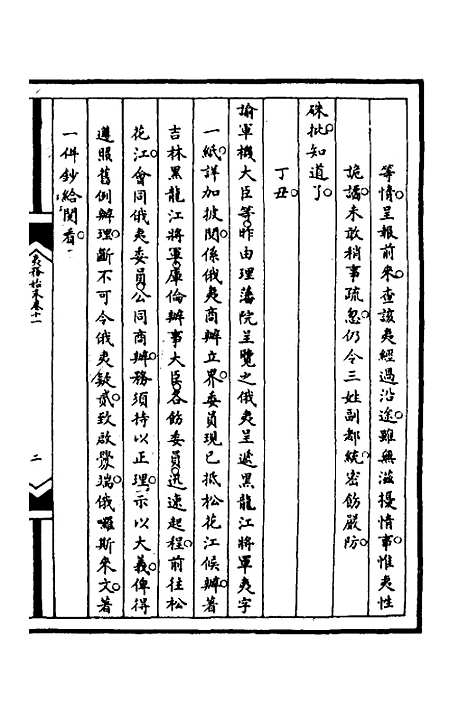 等情呈報前來查該夷經過沿途雖無滋擾情事惟夷性
詭譎未敢稍事疏忽仍令三姓副都統密飭嚴防
硃批知道了
丁丑
諭軍機大臣等昨由理藩院呈覽之俄夷呈遞黑龍江將軍夷字
一紙詳加披閱係俄夷商辦立界委員現已抵松花江候辦著
吉林黑龍江將軍庫倫辦事大臣各飭委員迅速起程前往松
花江會同俄夷委員公同商辦務須持以正理示以大義俾得
遵照舊例辦理斷不可令俄夷欵貳致啟釁端俄囉斯來文著
一件鈔給閱看
夷務始末卷十一
二